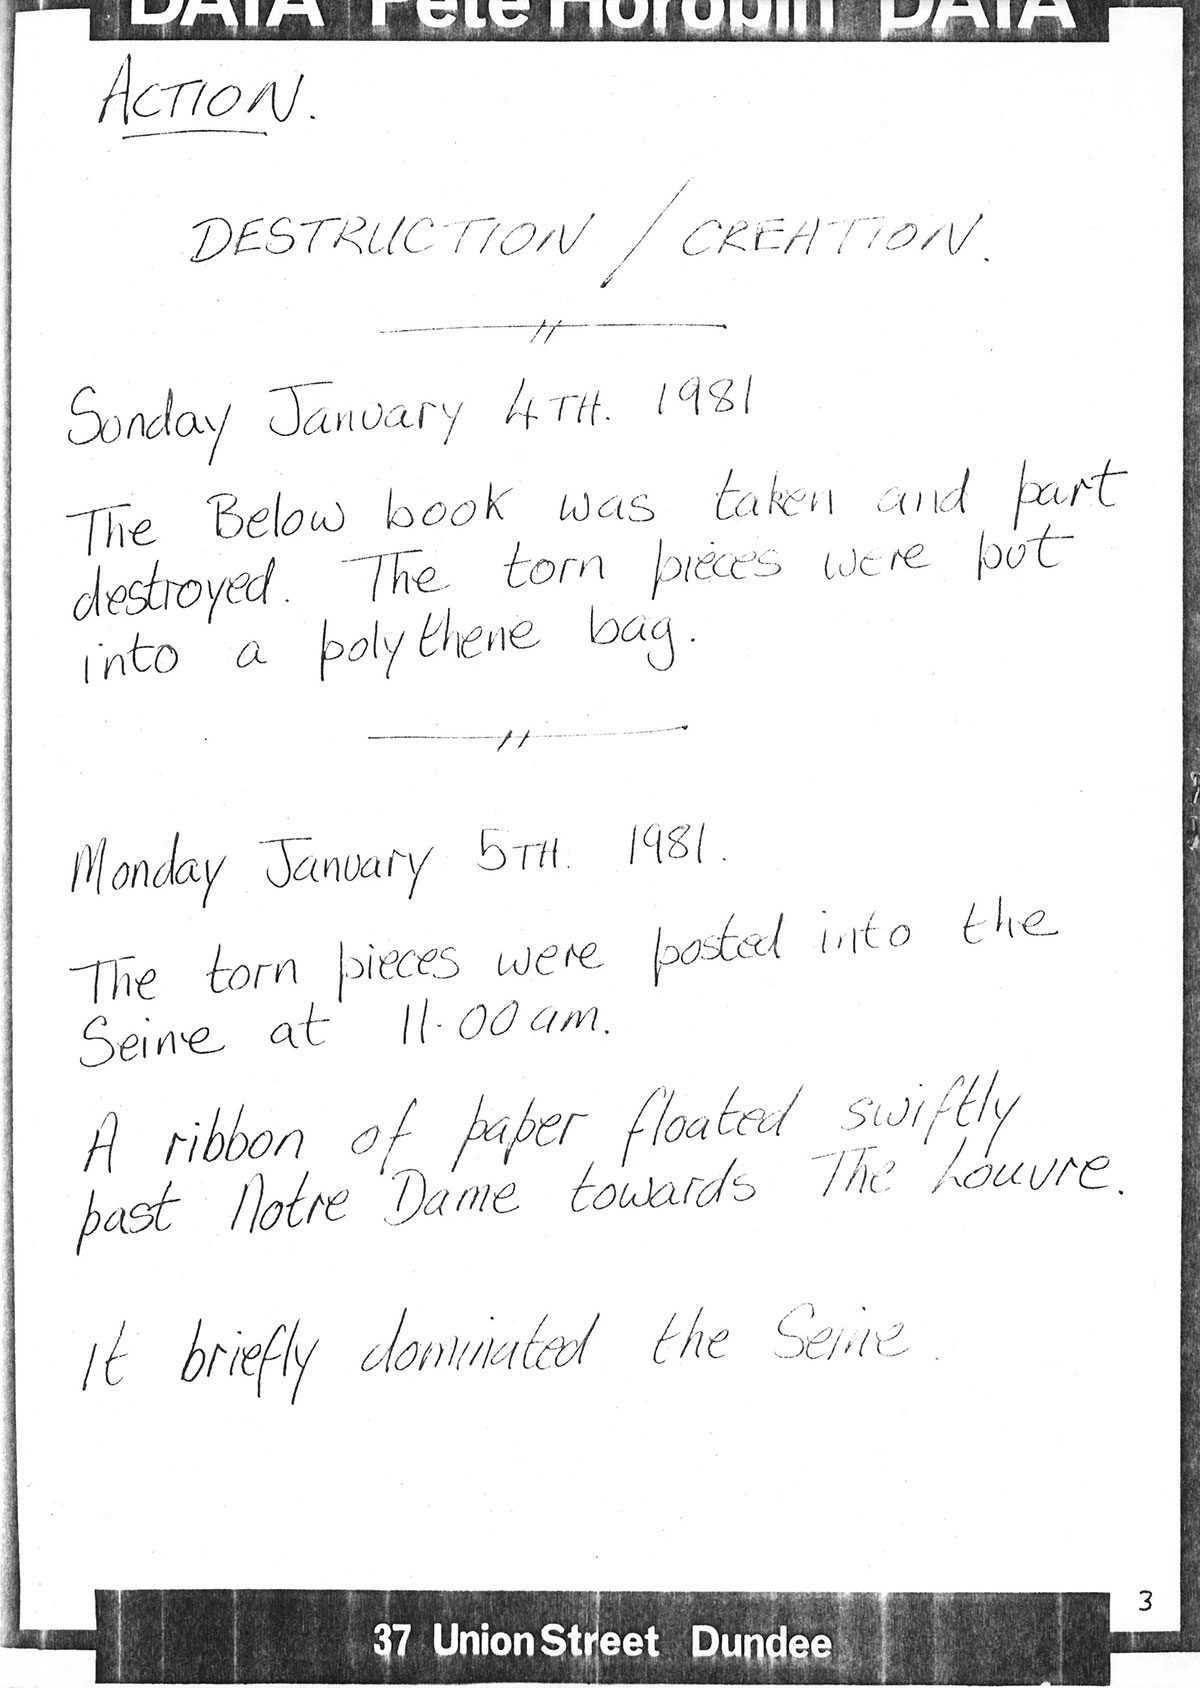 DATA Pete Horobin DATA
ACTION.
DESTRUCTION / CREATION.
Sunday January 4TH. 1981
The Below book was taken and part
destroyed. The torn pieces were put
into a polythene bag.
Monday January 5TH. 1981.
The torn pieces were posted into the
Seine at 11.00am.
A ribbon of paper floated swiftly
past Notre Dame towards The Louvre.
It briefly dominated the Seine.
3
37 Union Street Dundee